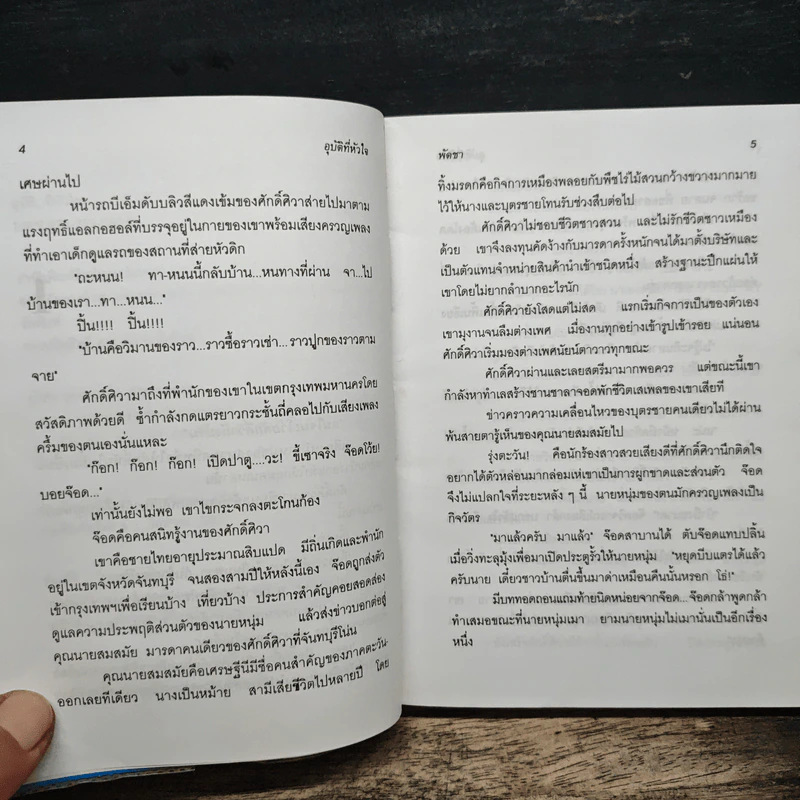 4
อุบัติที่หัวใจ
เศษผ่านไป
หน้ารถบีเอ็มดับบลิวสีแดงเข้มของศักดิ์ศิวาส่ายไปมาตาม
แรงฤทธิ์แอลกอฮอล์ที่บรรจุอยู่ในกายของเขาพร้อมเสียงครวญเพลง
ที่ทำเอาเด็กดูแลรถของสถานที่ส่ายหัวดิก
"ถะหนน! ทา-หนนนี้กลับบ้าน...หนทางที่ผ่าน จา...ไป
บ้านของเรา...ทา...หนน..."
ปิ้น!!!! ปิ้น!!!!
"บ้านคือวิมานของราว...ราวซื้อราวเช่า...ราวปูกของราวตาม
จาย"
ศักดิ์ศิวามาถึงที่พำนักของเขาในเขตกรุงเทพมหานครโดย
สวัสดิภาพด้วยดี ซ้ำกำลังกดแตรยาวกระชั้นถี่คลอไปกับเสียงเพลง
ครึ้มของตนเองนั่นแหละ
"ก๊อก! ก๊อก! ก๊อก! เปิดปาตู....วะ! ขี้เซาจริง จ๊อดโว้ย!
บอยจ๊อด..."
เท่านั้นยังไม่พอ เขาไขกระจกลงตะโกนก้อง
จ๊อดคือคนสนิทรู้งานของศักดิ์ศิวา
เขาคือชายไทยอายุประมาณสิบแปด มีถิ่นเกิดและพำนัก
อยู่ในเขตจังหวัดจันทบุรี จนสองสามปีให้หลังนี้เอง จ๊อดถูกส่งตัว
เข้ากรุงเทพฯเพื่อเรียนบ้าง เที่ยวบ้าง ประการสำคัญคอยสอดส่อง
ดูแลความประพฤติส่วนตัวของนายหนุ่ม แล้วส่งข่าวบอกต่ออยู่
คุณนายสมสมัย มารดาคนเดียวของศักดิ์ศิวาที่จันทบุรีโน่น
คุณนายสมสมัยคือเศรษฐีนีมีชื่อคนสำคัญของภาคตะวัน-
ออกเลยทีเดียว นางเป็นหม้าย สามีเสียชีวิตไปหลายปี โดย
พัดชา
5
ทิ้งมรดกคือกิจการเหมืองพลอยกับพืชไร่ไม้สวนกว้างขวางมากมาย
ไว้ให้นางและบุตรชายโทนรับช่วงสืบต่อไป
ศักดิ์ศิวาไม่ชอบชีวิตชาวสวน และไม่รักชีวิตชาวเหมือง
ด้วย เขาจึงลงทุนคัดง้างกับมารดาครั้งหนักจนได้มาตั้งบริษัทและ
เป็นตัวแทนจำหน่ายสินค้านำเข้าชนิดหนึ่ง สร้างฐานะปึกแผ่นให้
เขาโดยไม่ยากลำบากอะไรนัก
ศักดิ์ศิวายังโสดแต่ไม่สด แรกเริ่มกิจการเป็นของตัวเอง
เขามุงานจนลืมต่างเพศ เมื่องานทุกอย่างเข้ารูปเข้ารอย แน่นอน
ศักดิ์ศิวาเริ่มมองต่างเพศนัยน์ตาวาวทุกขณะ
ศักดิ์ศิวาผ่านและเลยสตรีมามากพอควร แต่ขณะนี้เขา
กำลังหาทำเลสร้างชานชาลาจอดพักชีวิตเสเพลของเขาเสียที
ข่าวคราวความเคลื่อนไหวของบุตรชายคนเดียวไม่ได้ผ่าน
พ้นสายตารู้เห็นของคุณนายสมสมัยไป
รุ่งตะวัน! คือนักร้องสาวสวยเสียงดีที่ศักดิ์ศิวานึกติดใจ
อยากได้ตัวหล่อนมากล่อมเห่เขาเป็นการผูกขาดและส่วนตัว จ๊อด
จึงไม่แปลกใจที่ระยะหลัง ๆ นี้ นายหนุ่มของตนมักครวญเพลงเป็น
กิจวัตร
"มาแล้วครับ มาแล้ว" จ๊อดสาบานได้ ตับจ๊อดแทบปลิ้น
เมื่อวิ่งทะลุมุ้งเพื่อมาเปิดประตูรั้วให้นายหนุ่ม "หยุดบีบแตรได้แล้ว
ครับนาย เดี๋ยวชาวบ้านตื่นขึ้นมาด่าเหมือนคืนนั้นหรอก โธ่!"
มีบททอดถอนแถมท้ายนิดหน่อยจากจ๊อด...จ๊อดกล้าพูดกล้า
ทำเสมอขณะที่นายหนุ่มเมา ยามนายหนุ่มไม่เมานั่นเป็นอีกเรื่อง
หนึ่ง